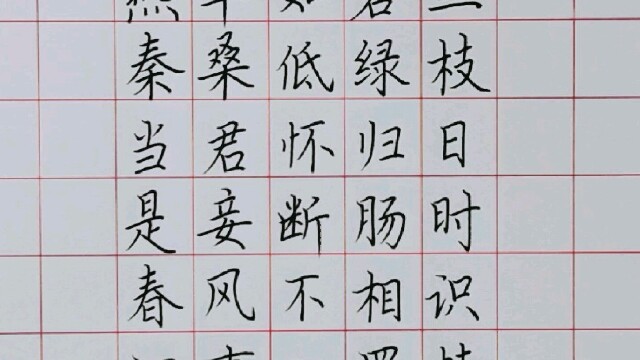 秦桑低绿枝
当君怀归日
是妾断肠时
春风不相识